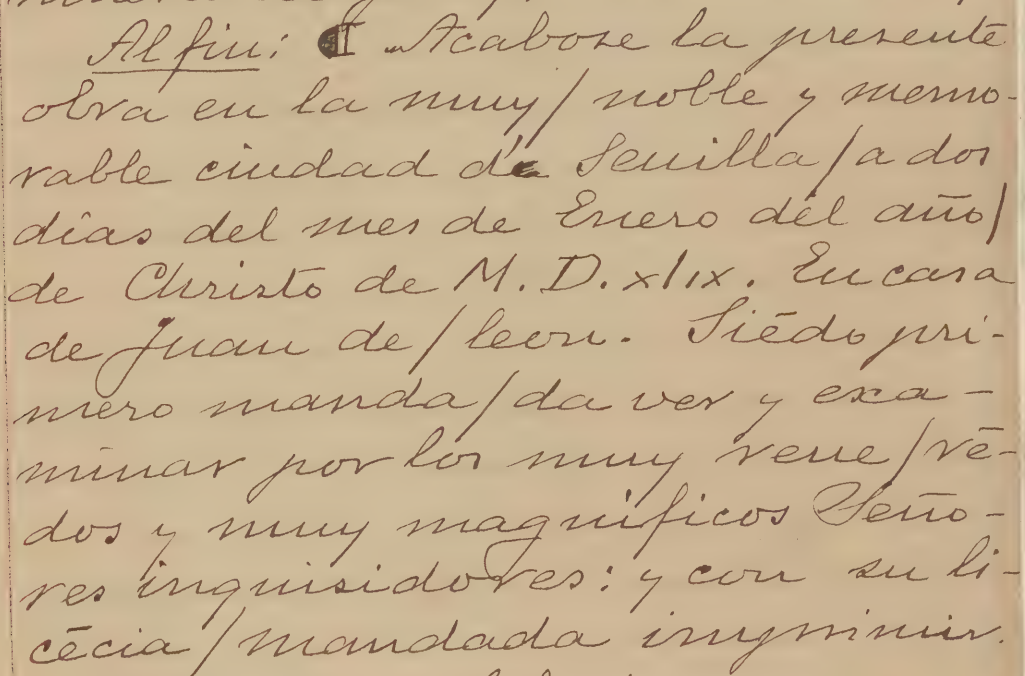 Al fin: ¶ Acabose la presente
obra en la muy/ noble y memo-
rable ciudad de Seuilla/a dos
dias del mes de Enero del año/
de Christo de M.D.xlix. En casa
de Juan de/leon. Siēdo pri-
mero manda/da ver y exa-
minar por los muy reue/rē-
dos y muy magnificos Seño-
res inquisidores: y con su li-
cēcia/mandada imprimir.